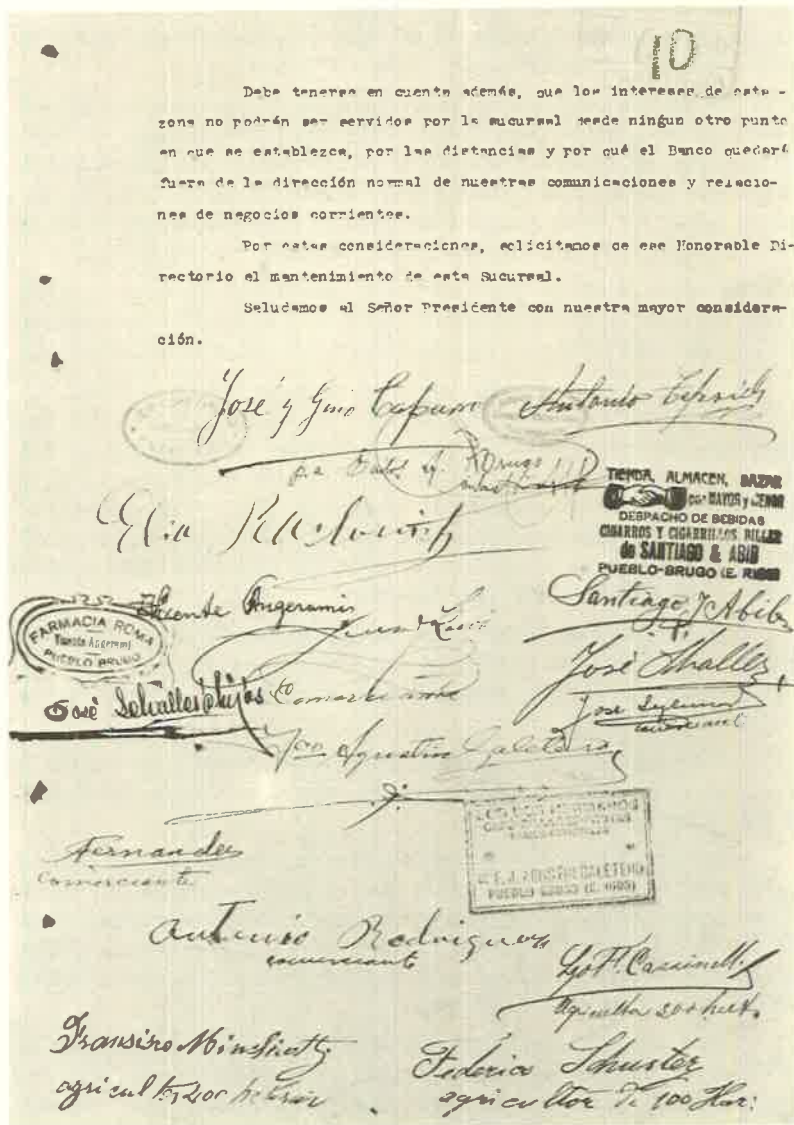 10
Debe tenerse en cuenta además, que los intereses de esta -
zona no podrán ser servidos por la sucursal desde ningun otro punto
en que se establezca, por las distancias y por qué el Banco quedará
fuera de la dirección normal de nuestras comunicaciones y relacio-
nes de negocios corrientes.
Por estas consideraciones, solicitamos de ese Honorable Di-
rectorio el mantenimiento de esta Sucursal.
Saludamos al Señor Presidente con nuestra mayor considera-
ción.
José y Gino
Antonio
TIENDA, ALMACEN, BAZAR
por MAYOR y MENOR
DESPACHO DE BEBIDAS
CIGARROS Y CIGARRILLOS, BILLAR
de SANTIAGO & ABIB
PUEBLO-BRUGO (E. RIOS)
Elia
Vicente Angeramis
Santiago y Abib
FARMACIA ROMA
Vicente Angerami
PUEBLO BRUGO
José Schaller
José Schaller e hijos
Comerciante
José
comerciante
Agustin
PUEBLO BRUGO (E. RIOS)
Fernandez
Comerciante
Antonio Rodriguez
comerciante
Cassinelli
agricultor 200 hect.
Fransisco
agricultor 200
Federico Schuster
agricultor de 100 Har: